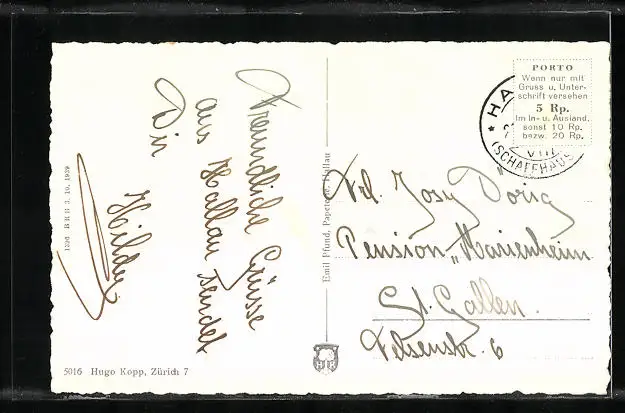 Freundliche Grüsse
aus Hallau sendet
Dir
Hildy
1296 BRB 3. 10. 1939
5016 Hugo Kopp, Zürich 7
Emil Pfund, Papeterie, Hallau
PORTO
Wenn nur mit
Gruss u. Unter-
schrift versehen
5 Rp.
Im In- u. Ausland.
sonst 10 Rp.
bezw. 20 Rp.
HA
VIII
(SCHAFFHAUS
Frl. Josy Dörig
Pension „Marienheim
St. Gallen.
Felsenstr. 6